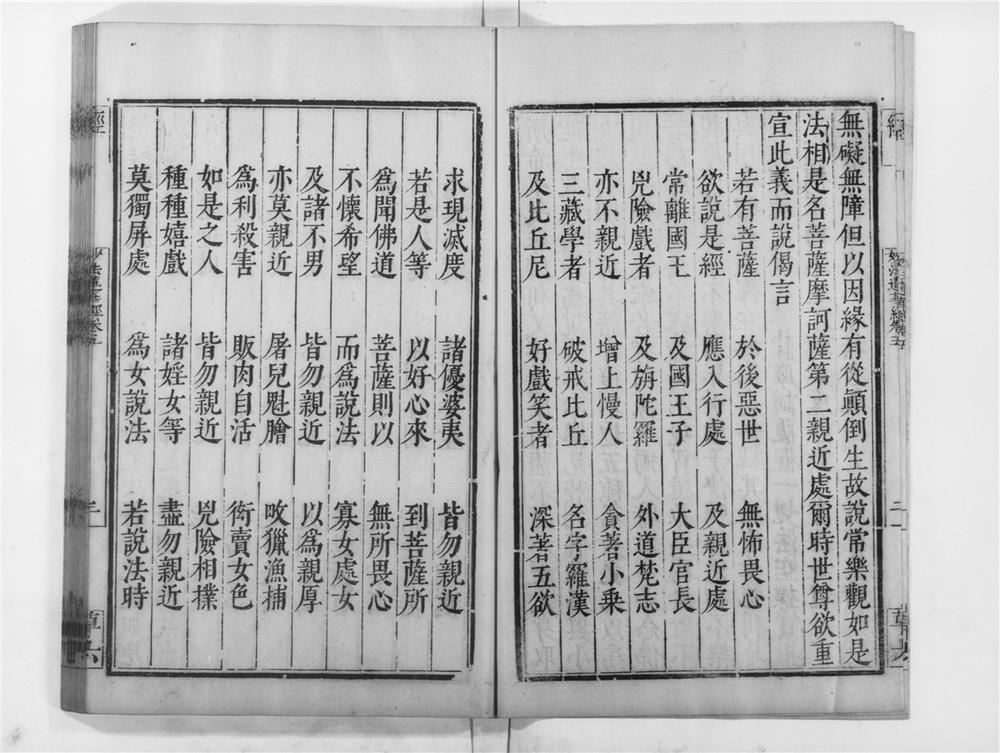 無礙無障但以因緣有從顚倒生故說常樂觀如是
法相是名菩薩摩訶薩第二親近處爾時世尊欲重
宣此義而說偈言
若有菩薩 於後惡世 無怖畏心
欲說是經 應入行處 及親近處
常離國王 及國王子 大臣官長
兇險戲者 及旃陀羅 外道梵志
亦不親近 增上慢人 貪著小乘
三藏學者 破戒比丘 名字羅漢
及比丘尼 好戲笑者 深著五欲
求現滅度 諸優婆夷 皆勿親近
若是人等 以好心來 到菩薩所
爲聞佛道 菩薩則以 無所畏心
不懷希望 而爲說法 寡女處女
及諸不男 皆勿親近 以爲親厚
亦莫親近 屠兒魁膾 畋獵漁捕
爲利殺害 販肉自活 衒賣女色
如是之人 皆勿親近 兇險相撲
種種嬉戲 諸婬女等 盡勿親近
莫獨屏處 爲女說法 若說法時
經
妙法蓮華經卷五
三
章六